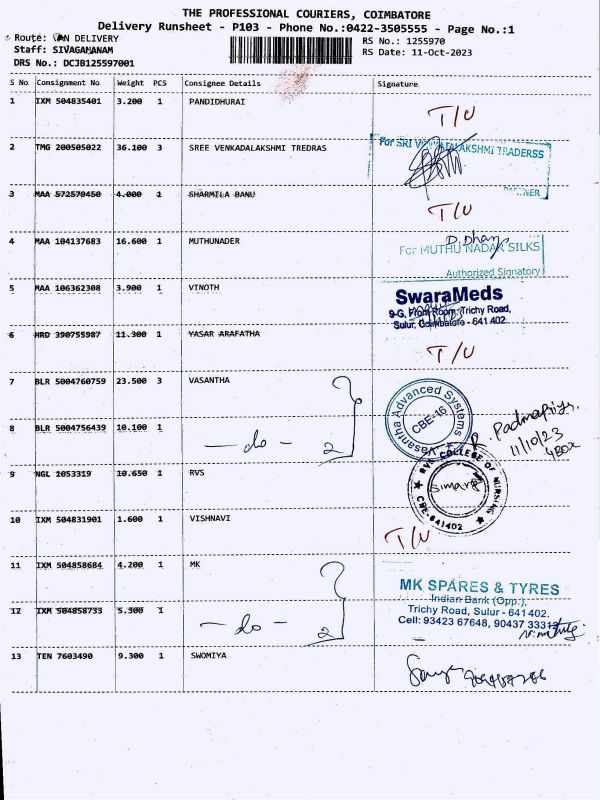 THE PROFESSIONAL COURIERS, COIMBATORE
Delivery Runsheet - P103 - Phone No.:0422-3505555 - Page No.:1
Route: VAN DELIVERY
RS No.: 1255970
Staff: SIVAGAMANAM
RS Date: 11-Oct-2023
DRS No.: DCJB125597001
S No. Consignment No. Weight PCS Consignee Details Signature
1 IXM 504835401 3.200 1 PANDIDHURAI T/U
2 TMG 200505022 36.100 3 SREE VENKADALAKSHMI TREDRAS
For SRI VENKADALAKSHMI TRADERSS
PARTNER
3 MAA 572579450 4.000 1 SHARMILA BANU T/U
4 MAA 104137683 16.600 1 MUTHUNADER
For MUTHU NADAR SILKS
Authorized Signatory
5 MAA 106362308 3.900 1 VINOTH
SwaraMeds
9-G, Front Room, Trichy Road,
Sulur, Coimbatore - 641 402.
6 HRD 390755987 11.300 1 YASAR ARAFATHA T/U
7 BLR 5004760759 23.500 3 VASANTHA
Vasantha Advanced Systems
CBE-16
Padmapriya
11/10/23
4 BOX
8 BLR 5004756439 10.100 1 — do — 2
9 NGL 1053319 10.650 1 RVS
RVS COLLEGE OF NURSING
CBE-641402
10 IXM 504831901 1.600 1 VISHNAVI T/U
11 IXM 504858684 4.200 1 MK
MK SPARES & TYRES
Indian Bank (Opp.),
Trichy Road, Sulur - 641 402.
Cell: 93423 67648, 90437 33312
12 IXM 504858733 5.300 1 — do — 2
13 TEN 7603490 9.300 1 SWOMIYA